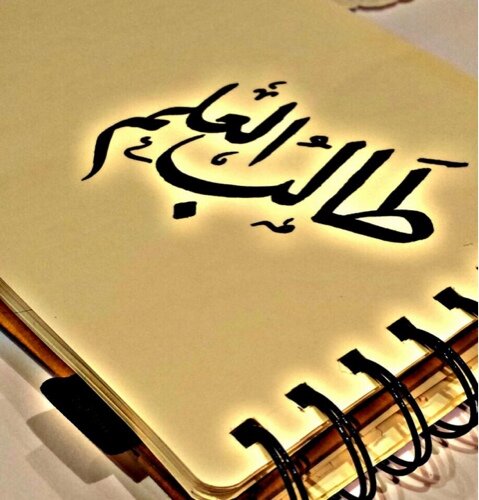 طالب العلم